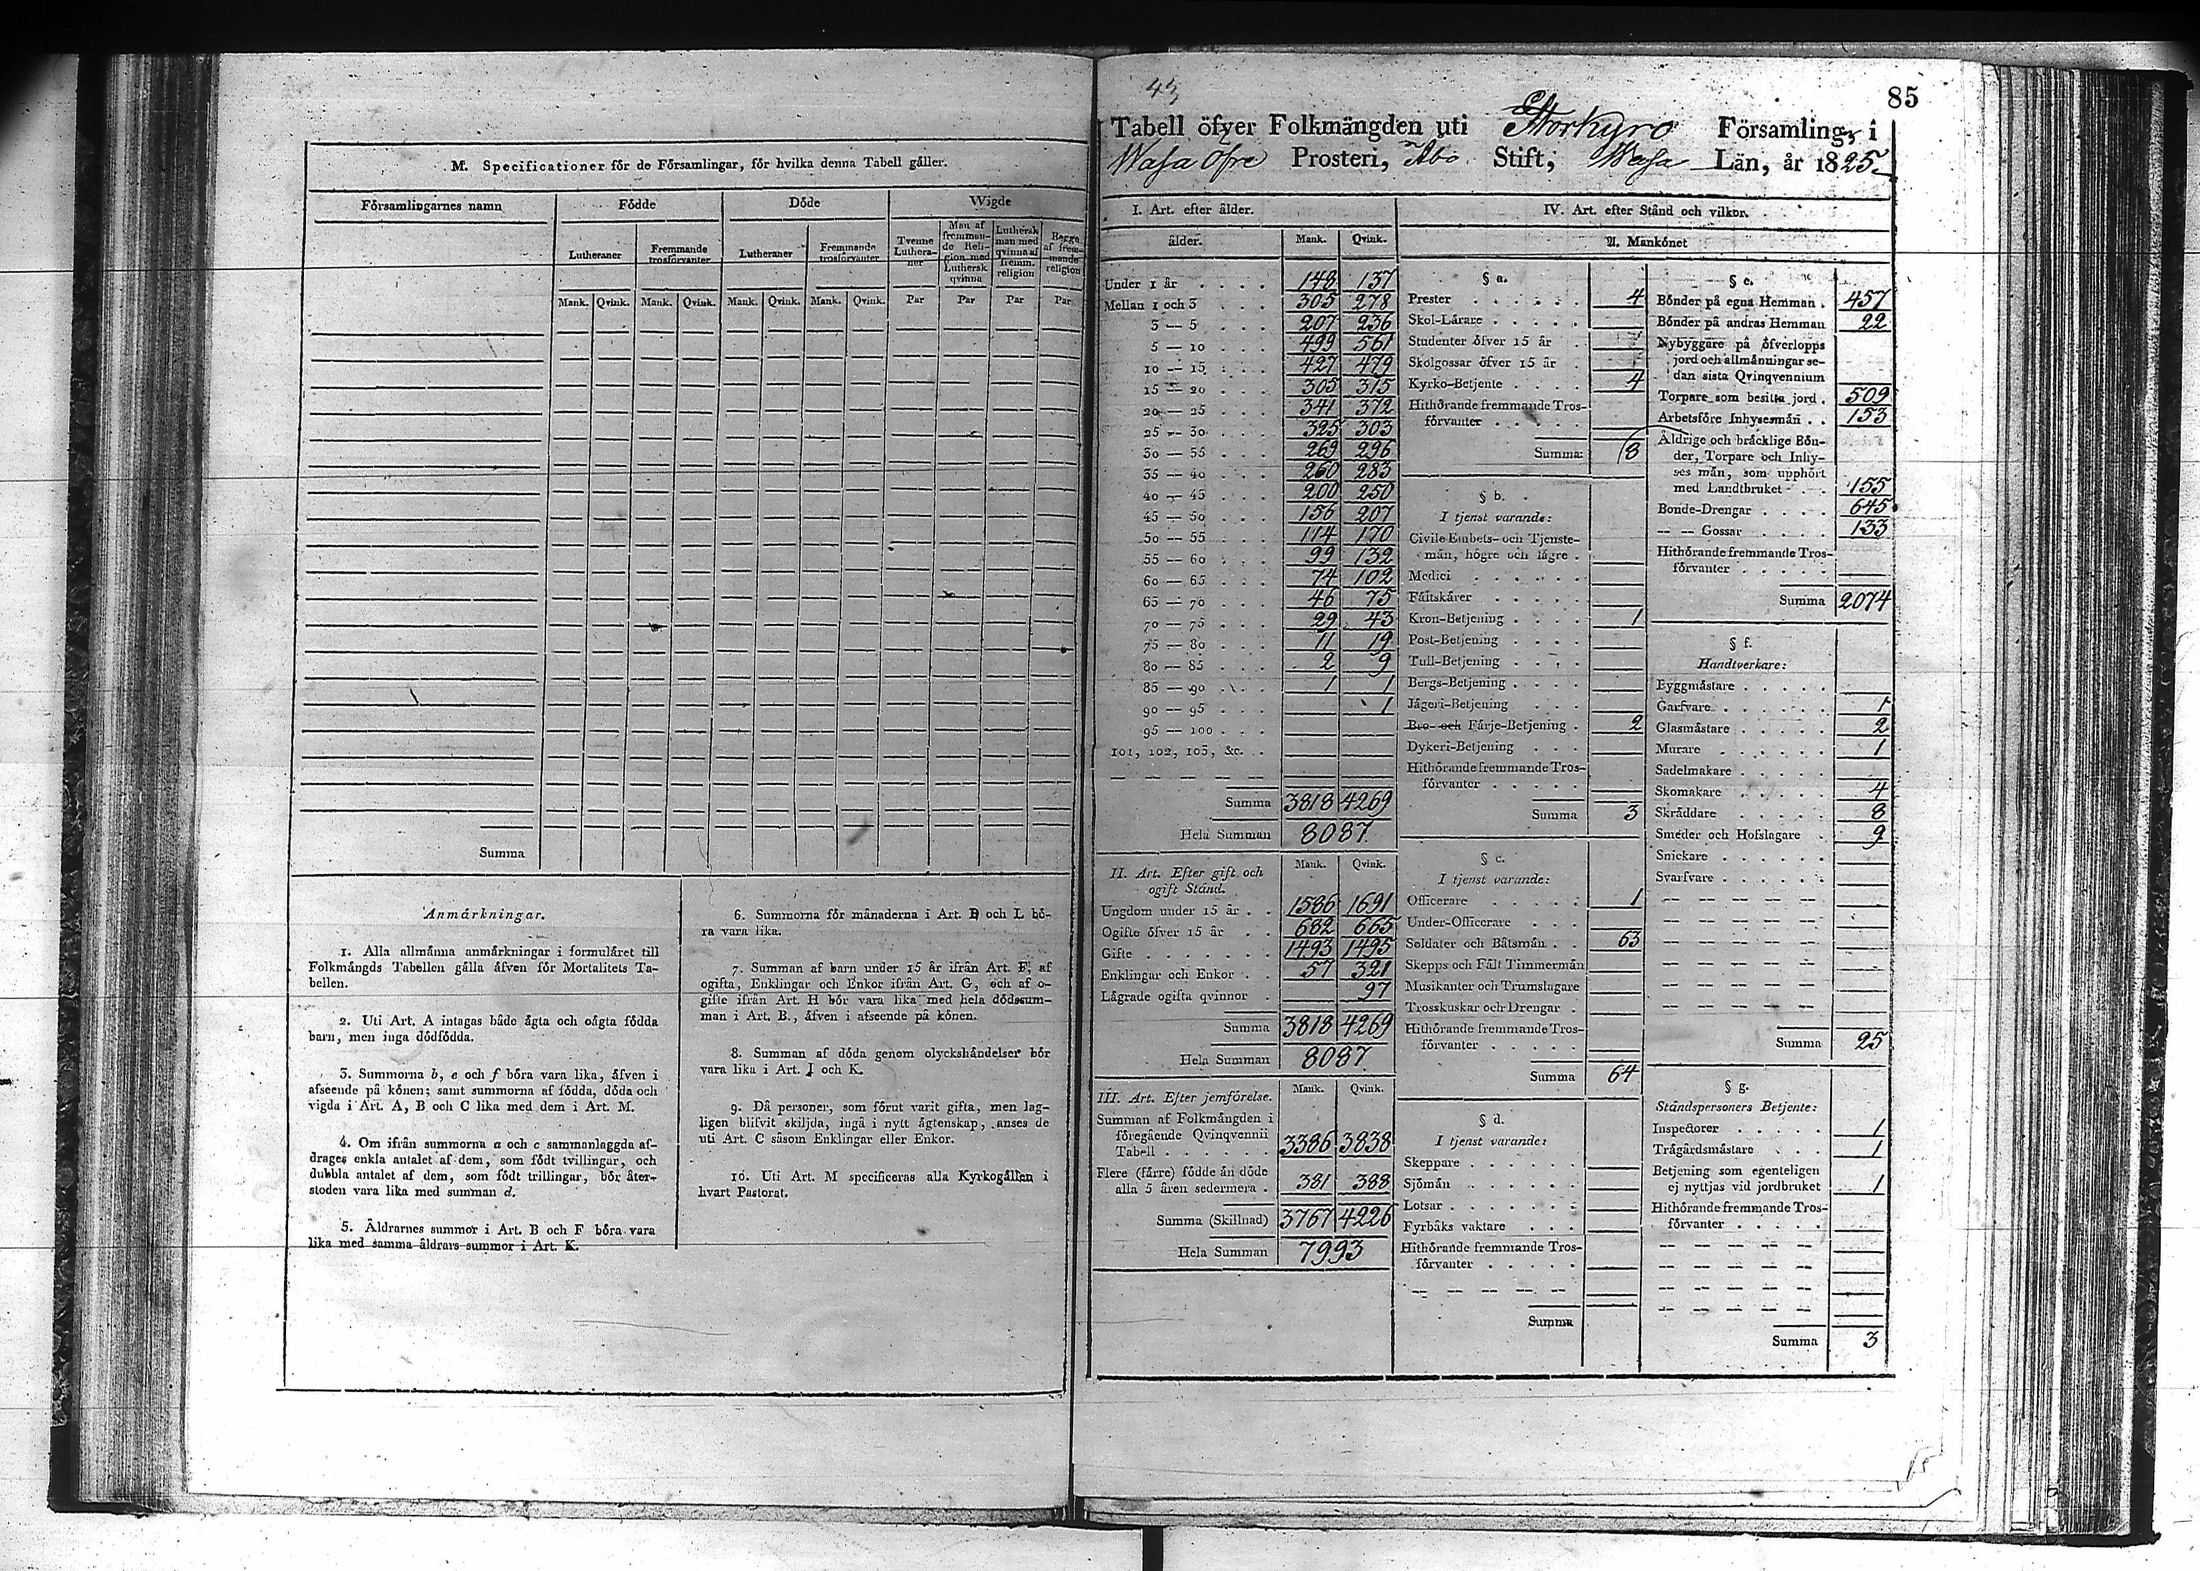 M. Specificationer för de Församlingar, för hvilka denna Tabell gäller.
Församlingarnes namn
Födde
Döde
Wigde
Lutheraner
Fremmande trosförvanter
Lutheraner
Fremmande trosförvanter
Tvenne Lutheraner
Man af fremmande Religion med Luthersk qvinna
Luthersk man med qvinna af fremm. religion
Begge af fremmande religion
Mank. Qvink. Mank. Qvink. Mank. Qvink. Mank. Qvink. Par Par Par Par
Summa
Anmärkningar.
1. Alla allmänna anmärkningar i formuläret till
Folkmängds Tabellen gälla äfven för Mortalitets Ta-
bellen.
2. Uti Art. A intagas både ägta och oägta födda
barn, men inga dödfödda.
3. Summorna b, e och f böra vara lika, äfven i
afseende på könen; samt summorna af födda, döda och
vigda i Art. A, B och C lika med dem i Art. M.
4. Om ifrån summorna a och c sammanlaggda af-
drages enkla antalet af dem, som födt tvillingar, och
dubbla antalet af dem, som födt trillingar, bör åter-
stoden vara lika med summan d.
5. Äldrarnes summor i Art. B och F böra vara
lika med samma äldrars summor i Art. K.
6. Summorna för månaderna i Art. D och L bö-
ra vara lika.
7. Summan af barn under 15 år ifrån Art. F, af
ogifta, Enklingar och Enkor ifrån Art. G, och af o-
gifte ifrån Art. H bör vara lika med hela dödssum-
man i Art. B., äfven i afseende på könen.
8. Summan af döda genom olyckshändelser bör
vara lika i Art. I och K.
9. Då personer, som förut varit gifta, men lag-
ligen blifvit skiljda, ingå i nytt ägtenskap, anses de
uti Art. C såsom Enklingar eller Enkor.
10. Uti Art. M specificeras alla Kyrkogällen i
hvart Pastorat.
43
85
Tabell öfver Folkmängden uti Storkyro Församling, i
Wasa Öfre Prosteri, Åbo Stift, Wasa Län, år 1825
I. Art. efter ålder.
ålder. Mank. Qvink.
Under 1 år 148 137
Mellan 1 och 3 305 278
3 — 5 207 236
5 — 10 499 561
10 — 15 427 479
15 — 20 305 315
20 — 25 341 372
25 — 30 325 303
30 — 35 269 296
35 — 40 260 283
40 — 45 200 250
45 — 50 156 207
50 — 55 114 170
55 — 60 99 132
60 — 65 74 102
65 — 70 46 75
70 — 75 29 43
75 — 80 11 19
80 — 85 2 9
85 — 90 1 1
90 — 95 1
95 — 100
101, 102, 103, &c.
Summa 3818 4269
Hela Summan 8087
II. Art. Efter gift och ogift Stånd. Mank. Qvink.
Ungdom under 15 år 1586 1691
Ogifte öfver 15 år 682 665
Gifte 1493 1495
Enklingar och Enkor 57 321
Lägrade ogifta qvinnor 97
Summa 3818 4269
Hela Summan 8087
III. Art. Efter jemförelse. Mank. Qvink.
Summan af Folkmängden i
föregående Qvinqvennii
Tabell 3386 3838
Flere (färre) födde än döde
alla 5 åren sedermera 381 388
Summa (Skillnad) 3767 4226
Hela Summan 7993
IV. Art. efter Stånd och vilkor.
A. Mankönet
§ a.
Prester 4
Skol-Lärare
Studenter öfver 15 år
Skolgossar öfver 15 år
Kyrko-Betjente 4
Hithörande fremmande Tros-
förvanter
Summa: 8
§ b.
I tjenst varande:
Civile Embets- och Tjenste-
män, högre och lägre
Medici
Fältskärer
Kron-Betjening 1
Post-Betjening
Tull-Betjening
Bergs-Betjening
Jägeri-Betjening
Bro- och Färje-Betjening 2
Dykeri-Betjening
Hithörande fremmande Tros-
förvanter
Summa 3
§ c.
I tjenst varande:
Officerare 1
Under-Officerare
Soldater och Båtsmän 63
Skepps och Fält Timmermän
Musikanter och Trumslagare
Trosskuskar och Drengar
Hithörande fremmande Tros-
förvanter
Summa 64
§ d.
I tjenst varande:
Skeppare
Sjömän
Lotsar
Fyrbåks vaktare
Hithörande fremmande Tros-
förvanter
Summa
§ e.
Bönder på egna Hemman 457
Bönder på andras Hemman 22
Nybyggare på öfverlopps
jord och allmänningar se-
dan sista Qvinqvennium
Torpare som besitta jord 509
Arbetsföre Inhysesmän 153
Äldrige och bräcklige Bön-
der, Torpare och Inhy-
ses män, som upphört
med Landtbruket 155
Bonde-Drengar 645
— — Gossar 133
Hithörande fremmande Tros-
förvanter
Summa 2074
§ f.
Handtverkare:
Byggmästare
Garfvare 1
Glasmästare 2
Murare 1
Sadelmakare
Skomakare 4
Skräddare 8
Smeder och Hofslagare 9
Snickare
Svarfvare
Summa 25
§ g.
Ståndspersoners Betjente:
Inspectorer 1
Trägårdsmästare 1
Betjening som egenteligen
ej nyttjas vid jordbruket 1
Hithörande fremmande Tros-
förvanter
Summa 3